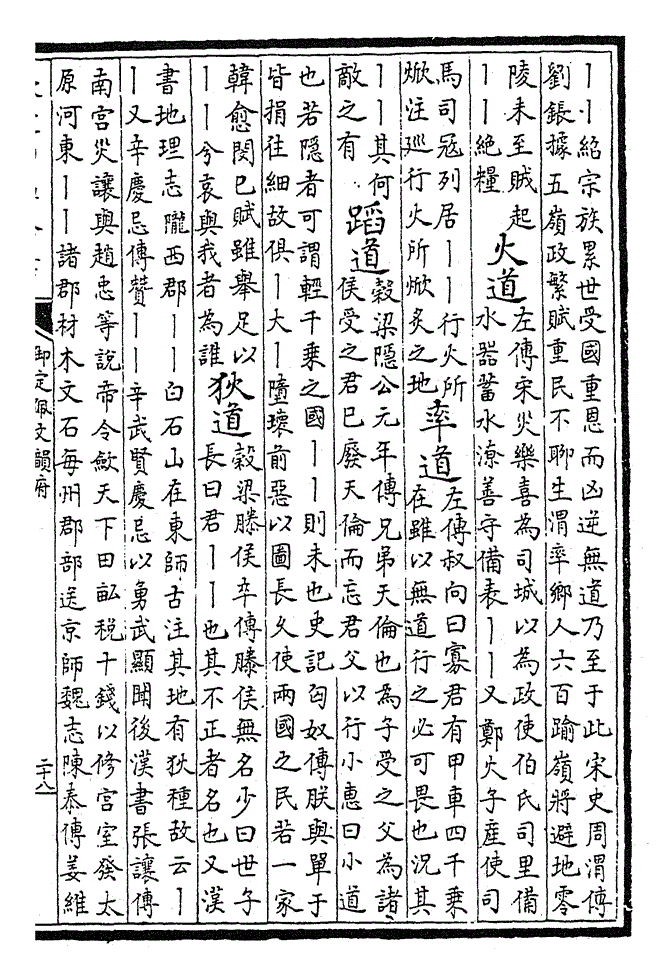 丨丨紹宗族累世受國重恩而凶逆無道乃至于此宋史周渭傳
劉鋹據五嶺政繁賦重民不聊生渭率鄉人六百踰嶺將避地零
陵未至賊起
丨丨絶糧
火道
左傳宋災樂喜為司城以為政使伯氏司里備
水器蓄水潦善守備表丨丨又鄭火子產使司
馬司寇列居丨丨行火所
焮注廵行火所焮炙之地
率道
左傳叔向曰寡君有甲車四千乗
在雖以無道行之必可畏也況其
丨丨其何
敵之有
蹈道
穀梁隱公元年傳兄弟天倫也為子受之父為諸
侯受之君已廢天倫而忘君父以行小惠曰小道
也若隱者可謂輕千乗之國丨丨則未也史記匈奴傳朕與單于
皆捐往細故俱丨大丨墮壞前惡以圖長久使兩國之民若一家
韓愈閔已賦雖舉足以
丨丨兮哀與我者為誰
狄道
穀梁滕侯卒傳滕侯無名少曰世子
長曰君丨丨也其不正者名也又漢
書地理志隴西郡丨丨白石山在東師古注其地有狄種故云丨
丨又辛慶忌傳贊丨丨辛武賢慶忌以勇武顯聞後漢書張讓傳
南宫災讓與趙忠等說帝令歛天下田畝税十錢以修宫室發太
原河東丨丨諸郡材木文石每州郡部送京師魏志陳泰傳姜維
御定佩文韻府
二十八